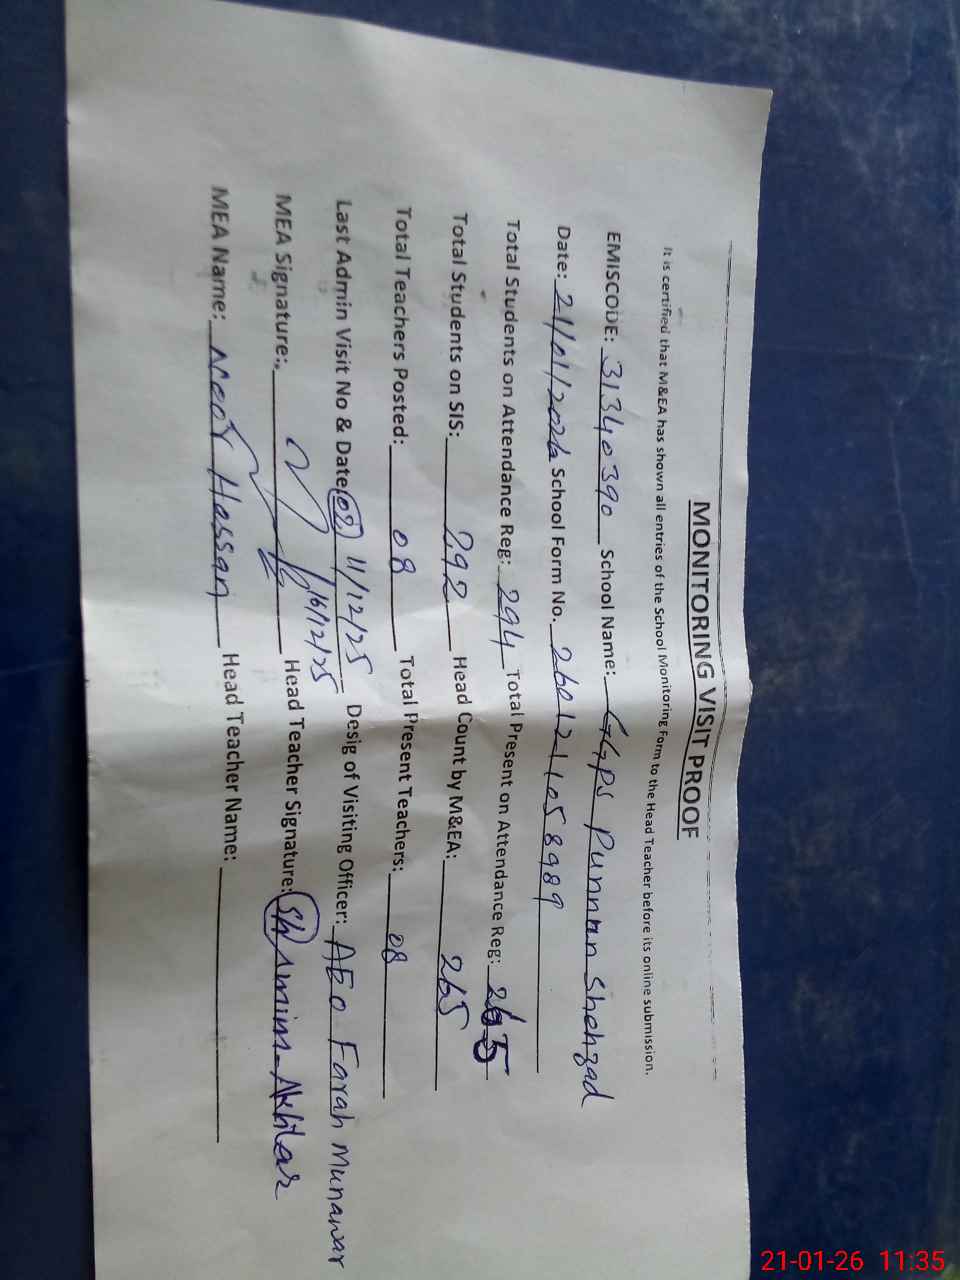 MONITORING VISIT PROOF
It is certified that M&EA has shown all entries of the School Monitoring Form to the Head Teacher before its online submission.
EMISCODE: 31340390 School Name: GGPS Punnan Shehzad
Date: 21/01/2026 School Form No. 2601211058989
Total Students on Attendance Reg: 294 Total Present on Attendance Reg: 265
Total Students on SIS: 292 Head Count by M&EA: 265
Total Teachers Posted: 08 Total Present Teachers: 08
Last Admin Visit No & Date: 02 11/12/25 Desig of Visiting Officer: AEO Farah Munawar
16/12/25
MEA Signature: Head Teacher Signature: Shamim Akhtar
MEA Name: Hassan Head Teacher Name:
21-01-26 11:35